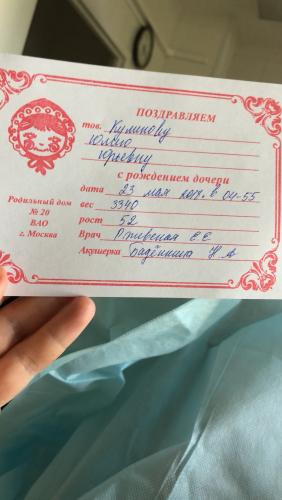 ПОЗДРАВЛЯЕМ
тов. Куликову
Юлию
Юрьевну
с рождением дочери
дата 23 мая 2017г. в 04-55
вес 3340
рост 52
Врач Ржевская Е.Е.
Акушерка Н А
Родильный дом
№ 20
ВАО
г. Москва